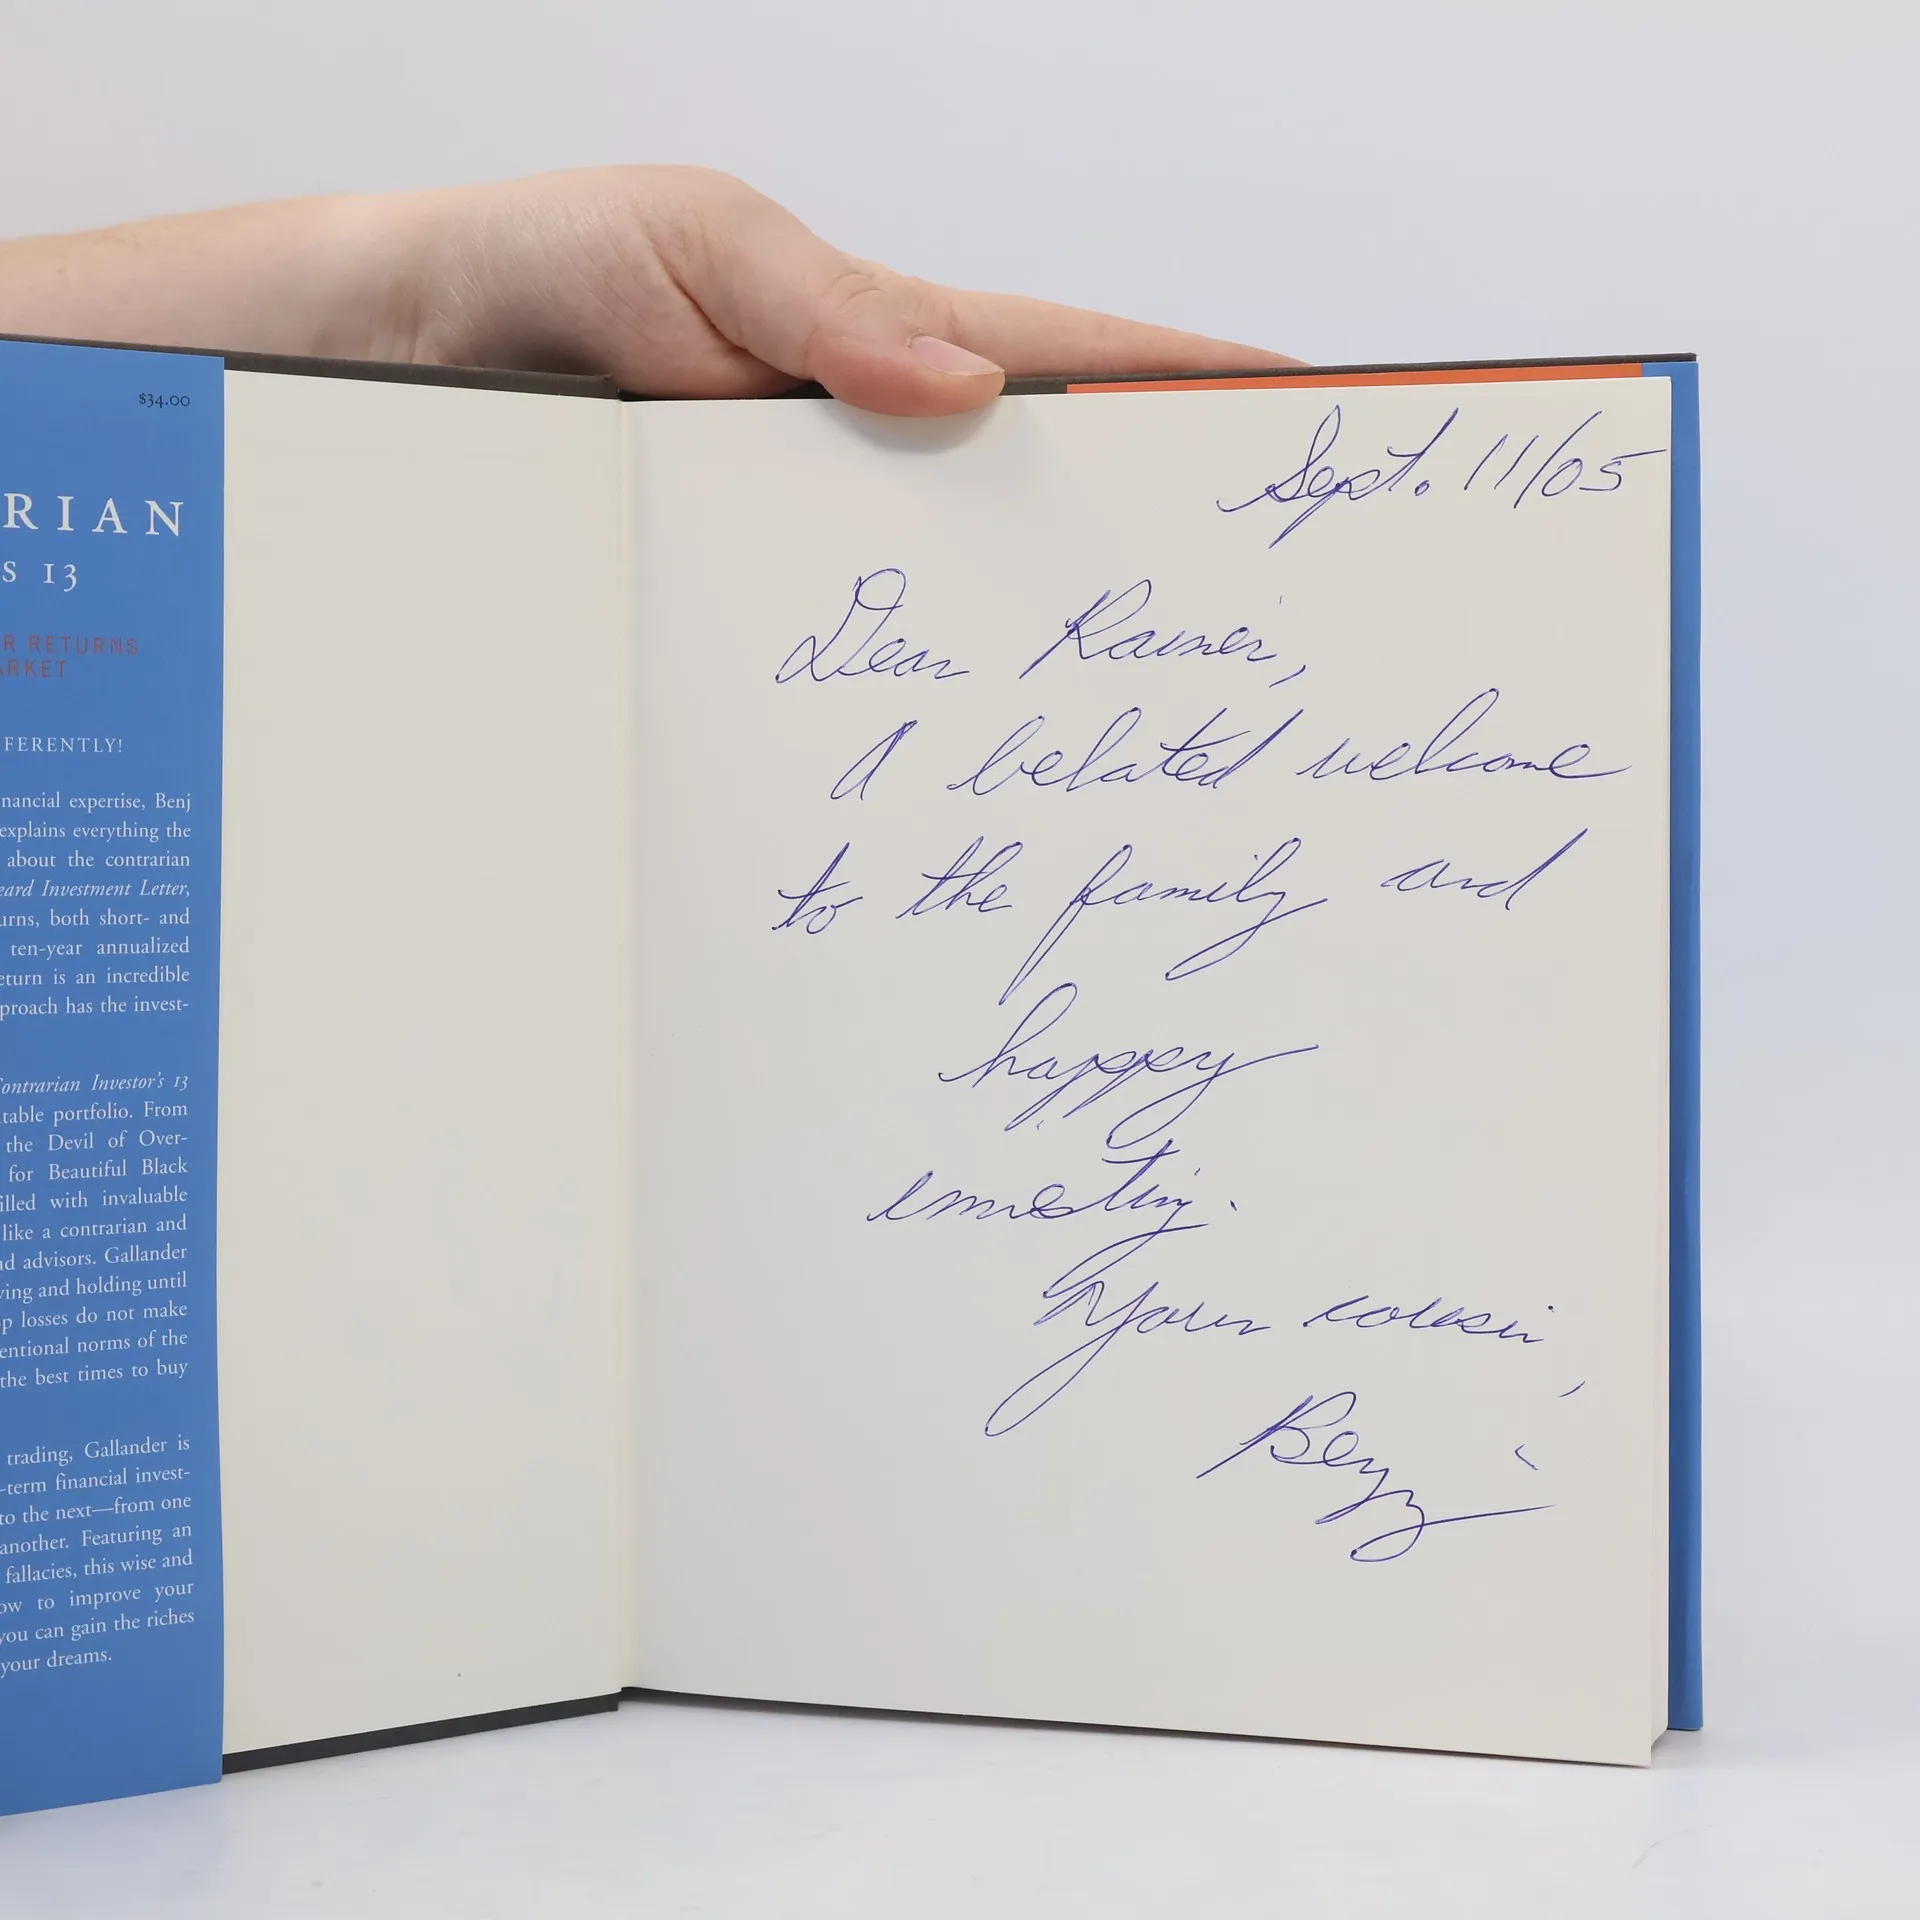 $34.00
RIAN
S 13
R RETURNS
ARKET
FERENTLY!
nancial expertise, Benj
explains everything the
about the contrarian
eard Investment Letter,
urns, both short- and
ten-year annualized
eturn is an incredible
proach has the invest-
ontrarian Investor's 13
table portfolio. From
the Devil of Over-
for Beautiful Black
illed with invaluable
like a contrarian and
nd advisors. Gallander
ying and holding until
p losses do not make
entional norms of the
the best times to buy
trading, Gallander is
-term financial invest-
to the next—from one
another. Featuring an
fallacies, this wise and
ow to improve your
you can gain the riches
your dreams.
Sept. 11/05
Dear Rainer,
A belated welcome
to the family and
happy
investing.
Your cousin,
Benj